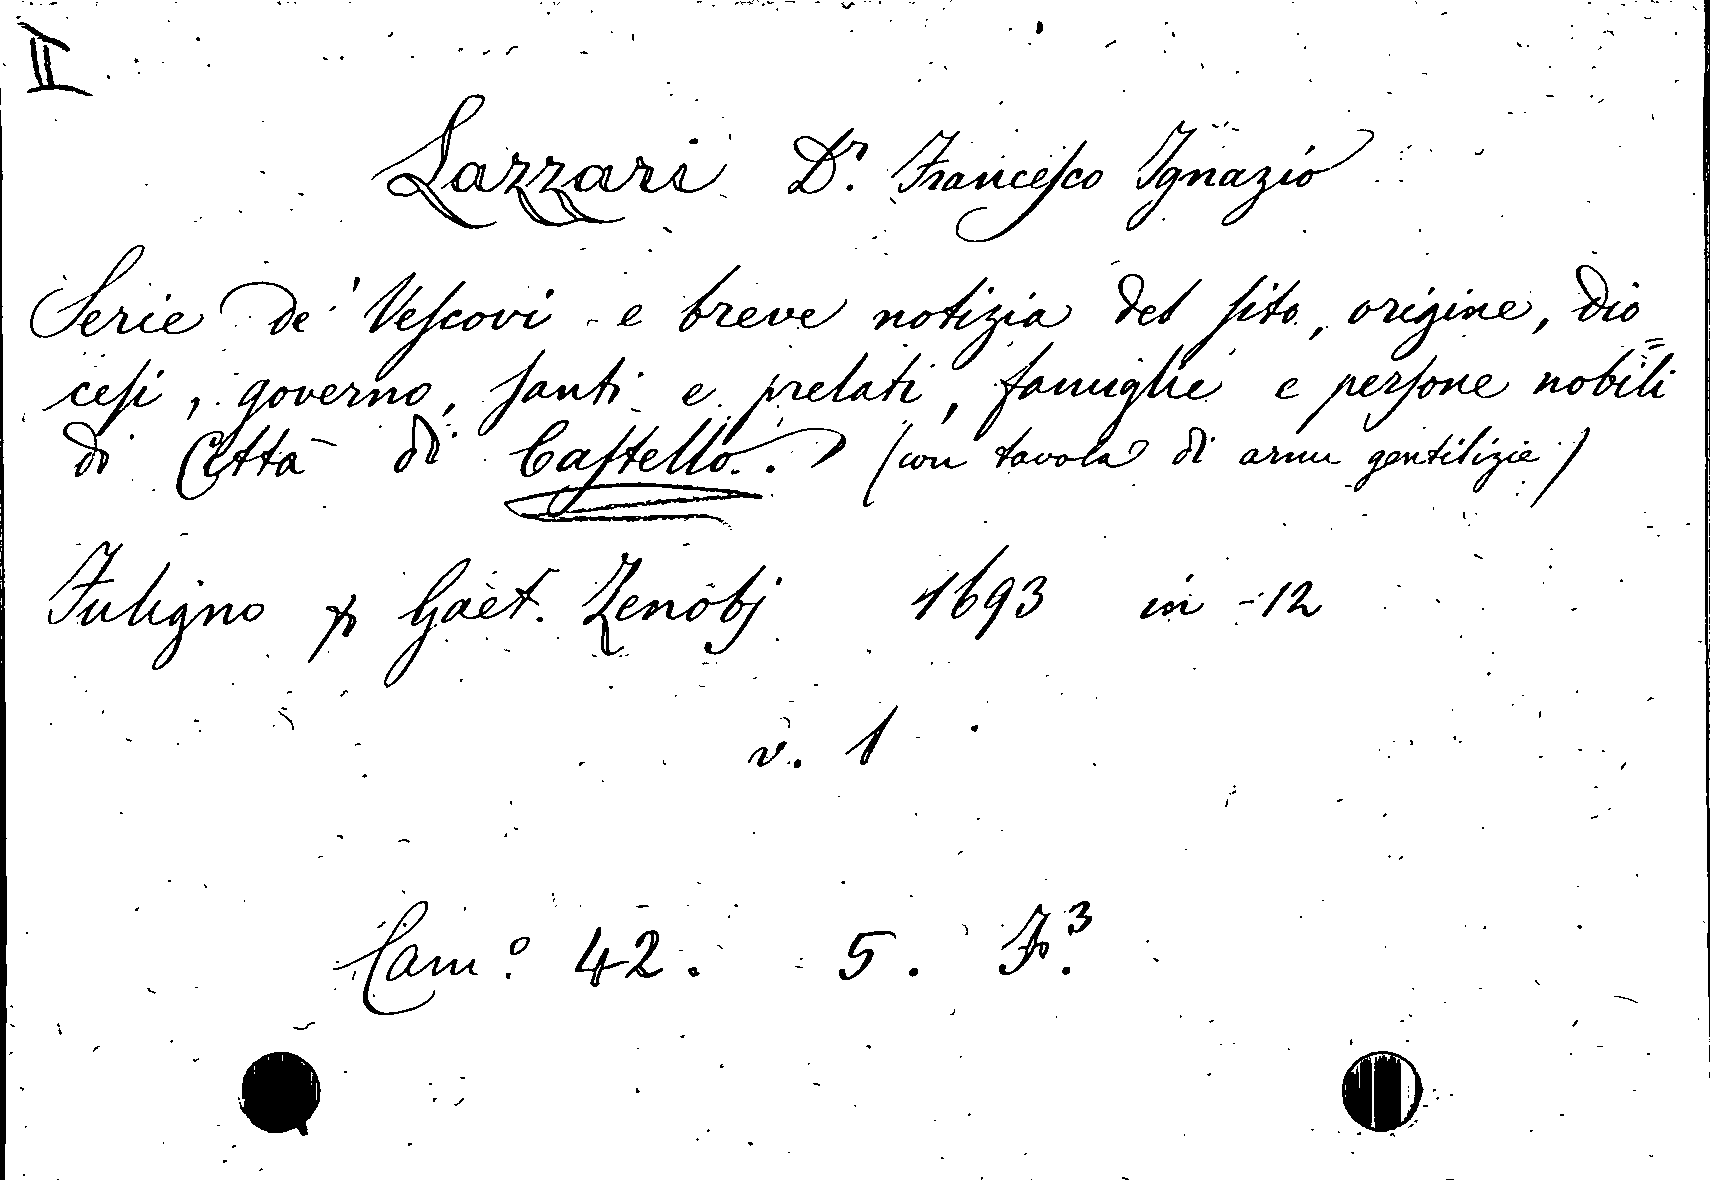 II
Lazzari Dr. Francesco Ignazio
Serie de' Vescovi e breve notizia del sito, origine, dio=
cesi, governo, santi e prelati, famiglie e persone nobili
di Città di Castello. (con tavola di armi gentilizie)
Fuligno p Gaet. Zenobj 1693 in-12
v. 1
Cam.º 42. 5. F.³